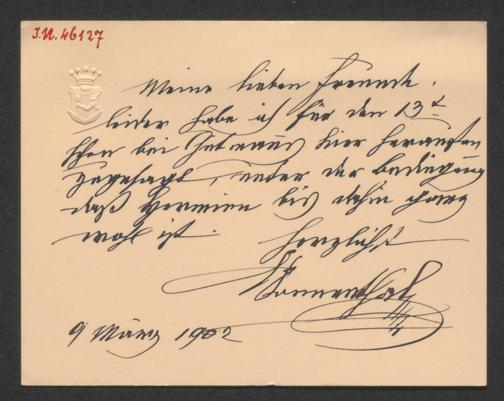 I.N. 46127
Meine lieben Freunde.
leider habe ich für den 13t
schon bei Gutmanns hier heraußen
zugesagt, unter der Bedingung
daß Hermine bis dahin ganz
wohl ist. Herzlichst
Sonnenthal
9 März 1902